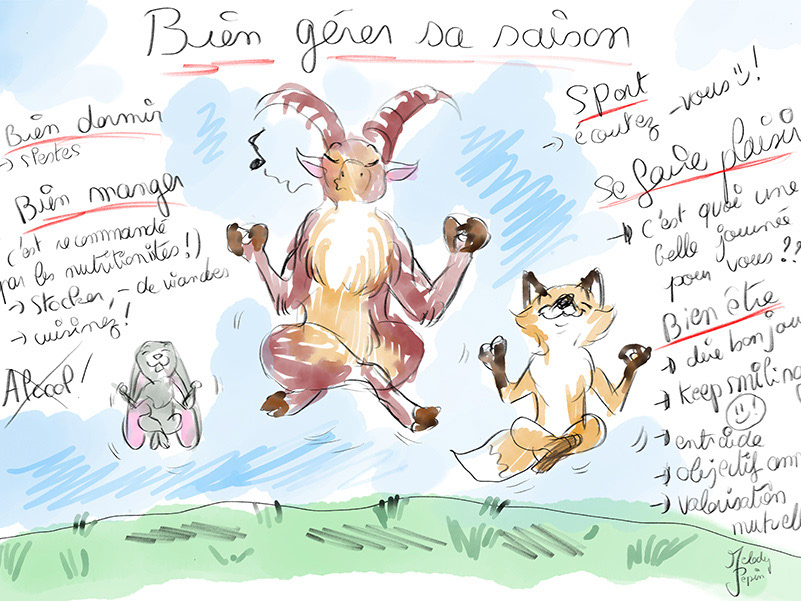 Bien gérer sa saison
Bien dormir
→ siestes
Bien manger
(c'est recommandé
par les nutritionistes!)
→ Stocker, - de viandes
→ cuisinez!
Alcool!
Sport
→ écoutez-vous !
Se faire plaisir
→ c'est quoi une
belle journée
pour vous ??
Bien être
→ dire bonjour
→ keep smiling
→ entraide
→ objectif
→ valorisation
mutuell
Melody
Pépin